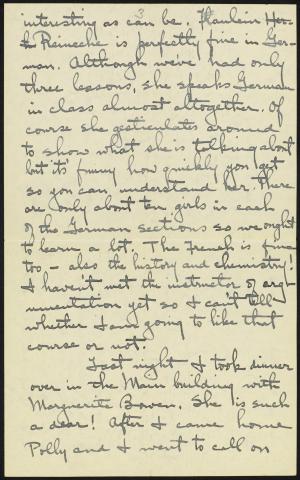 3
interesting as can be. Flaulein Her-
h Reineche is perfectly fine in Ger-
man. Although we've had only
three lessons, she speaks German
in class almost altogether. Of
course she gesticulates around
to show what she is talking about
but it's funny how quickly you get
so you can understand her. There
are only about ten girls in each
of the German sections so we ought
to learn a lot. The French is fine
too - also the history and chemistry!
I haven't met the instructor of arg-
umentation yet so I can't tell
whether I am going to like that
course or not.
Last night I took dinner
over in the Main building with
Marguerite Bowen. She is such
a dear! After I came home
Polly and I went to call on